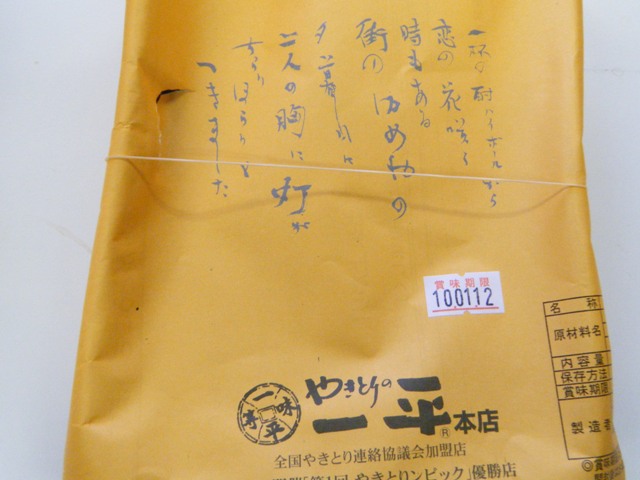 一杯の酎ハイボールから
恋の花咲く
時もある
街の溜め息の
夕暮れに
二人の胸に灯が
ぽつり ほろりと
つきました
賞味期限
100112
名 称
原材料名
内容量
保存方法
賞味期限
製造者
一平
やきとりの
一平本店
全国やきとり連絡協議会加盟店
「第1回 やきとリンピック」優勝店
◎賞味期